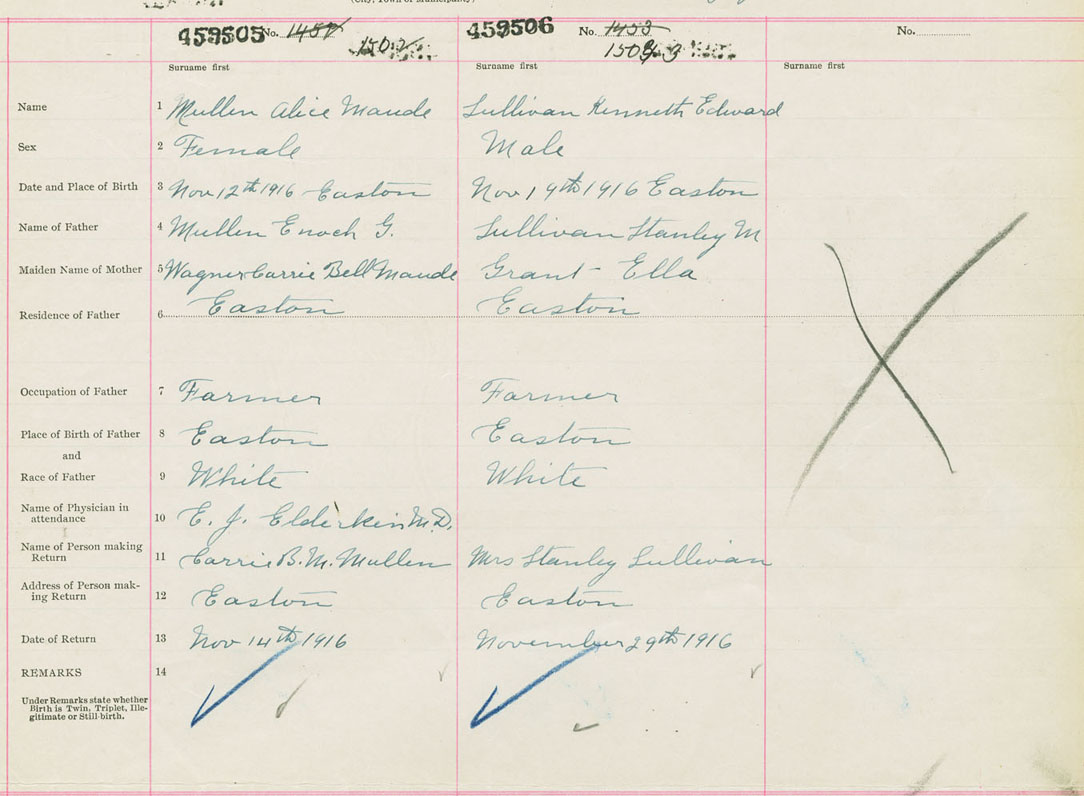 (City, Town or Municipality)
459505 No. 1502
459506 No. 1453
No.
Surname first
Surname first
Surname first
Name 1 Mullen Alice Maude Sullivan Kenneth Edward
Sex 2 Female Male
Date and Place of Birth 3 Nov 12th 1916 Easton Nov 19th 1916 Easton
Name of Father 4 Mullen Enoch G. Sullivan Stanley M
Maiden Name of Mother 5 Wagner Carrie Bell Maude Grant Ella
Residence of Father 6 Easton Easton
Occupation of Father 7 Farmer Farmer
Place of Birth of Father 8 Easton Easton
and
Race of Father 9 White White
Name of Physician in
attendance 10 E. J. Elderkin M.D.
Name of Person making
Return 11 Carrie B. M. Mullen Mrs Stanley Sullivan
Address of Person mak-
ing Return 12 Easton Easton
Date of Return 13 Nov 14th 1916 November 29th 1916
REMARKS 14
Under Remarks state whether
Birth is Twin, Triplet, Ille-
gitimate or Still-birth.